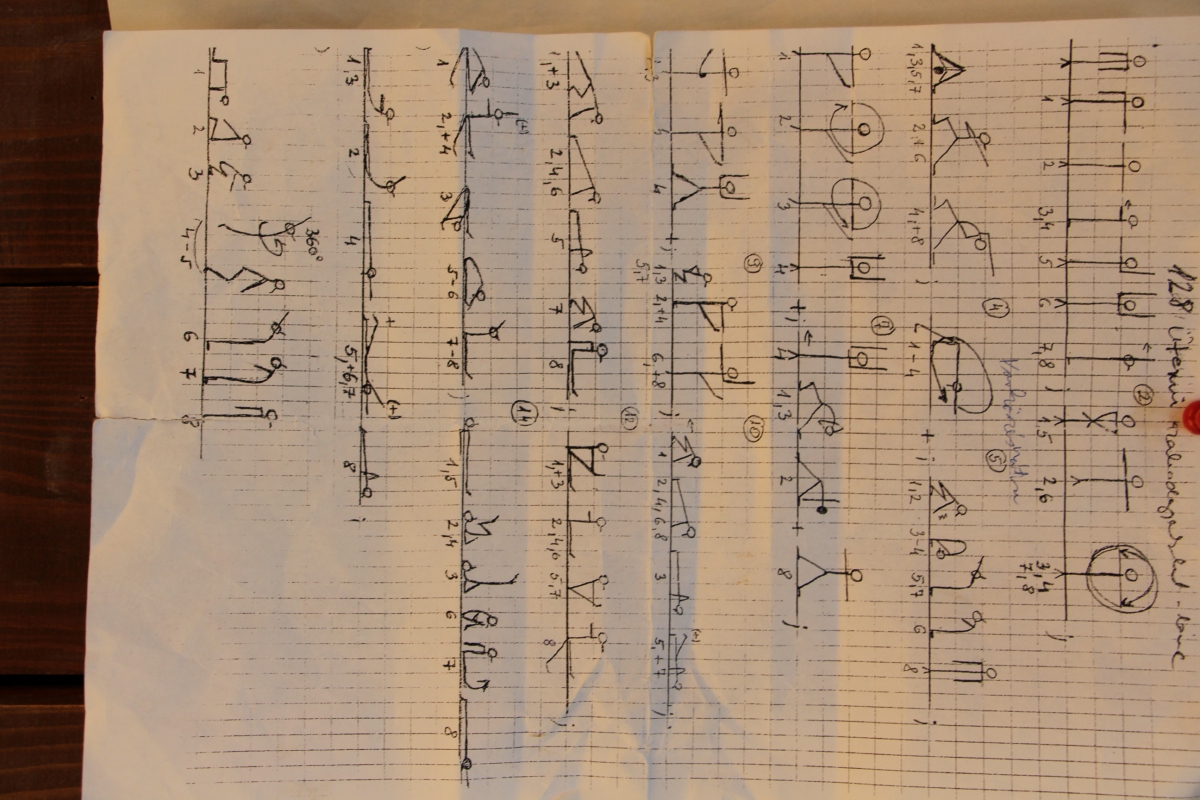 128 ütemű szabadgyakorlat-lánc
1 2 3,4 5 6 7,8 ; ② 1,5 2,6 3,4 7,8 ;
1,3,5,7 2,+6 4,+8 ; ④ 1-4 + ; ⑤ 1,2 3-4 5,7 6 8 ;
1 2 3 4 + ; ⑦ 4 1,3 2 + 8 ;
4 + ; ⑨ 1,3 5,7 2,+4 6,+8 ; ⑩ 1 2,4,6,8 3 5,+7 (+) ;
1,+3 2,4,6 5 7 8 ; ⑫ 1,+3 2,4,6 5,7 8 ;
1 2,+4 (+) 3 5-6 7-8 ; ⑪ 1,5 2,4 3 6 7 8
1,3 2 4 + 5,+6,7 (+) 8 ;
1 2 3 360° 4-5 6 7 8